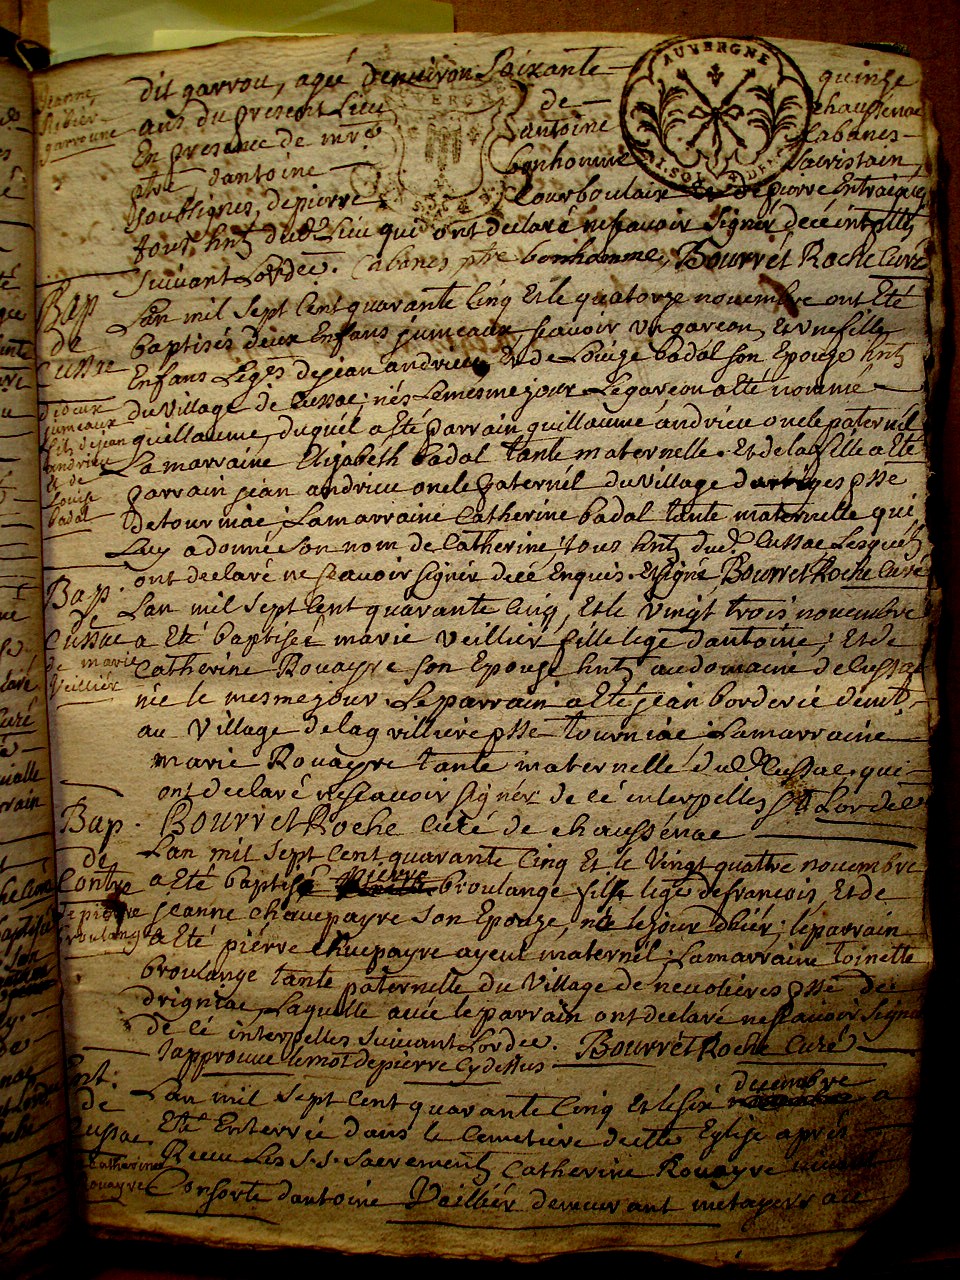 dit garrou, agée denuiron Soixante quinze
ans du present Lieu de chaussenac
En presence de mr. antoine Cabanes
ptre, dantoine bonhomme Sacristain
Soubsignés, depierre Courboulaix et depierre Entraigues
tous hnts dud. Lieu qui ont declaré nescavoir Signer de cé intpellés
Suivant Lordce. Cabanes ptre bonhomme, Bourret Roche Curé
Jeanne
Ribier
garroune
Bap
de
Cussac
Lan mil Sept Cent quarante Cinq Et le quatorze novembre ont Eté
baptisés deux Enfans jumeaux scavoir un garcon, Et vne fille
Enfans Leges dejean andrieu, Et de Louize badal son Epouze hnts
du Village de Cussac; nés Lemesme jour Legarcon a Eté nommé
guillaume, duquél a Eté parrain guillaume andrieu oncle paternél
La marraine Elizabeth badal tante maternelle. Et de la fille a Eté
parrain jean andrieu oncle paternél du Village psse
detourniac; Lamarraine Catherine badal tante maternelle qui
Luy a donnée Son nom de Catherine; tous hnts dud. Cussac Lesquels
ont declaré ne scavoir signér de cé Enquis. Et signé, Bourret Roche Curé
d deux
jumeaux
fils dejean
andrieu
Et de
Louise
badal
Bap.
de
Cussac
de marie
Veilliér
Lan mil Sept Cent quarante Cinq, Et le vingt trois novembre
a Eté baptisée marie Veilliér fille lege dantoine; Et de
Catherine Rouayre Son Epouze hnts audomaine de Cussac
née le mesme jour Le parrain a Eté jean borderie
au Village delagvilliere psse tourniac Lamarraine
marie Rouayre tante maternelle dud. Cussac. qui
ont declaré nescavoir signér de cé interpellés St. Lordce
Bourret Roche Curé de chaussenac
Bap.
de
Contre
de pierre
broulange
Lan mil Sept Cent quarante Cinq Et le Vingt quatre novembre
a Eté baptisé pierre broulange fils lege defrancois, Et de
jeanne chauepayre son Epouze, né le jour dhiér; le parrain
a Eté piérre chuepayre ayeul maternél; Lamarraine toinette
broulange tante paternelle du Village de neuolieres psse de
drigniac Laquelle auéc le parrain ont declaré nescavoir signer
de cé interpellés suivant Lordce. Bourret Roche Curé
Japprouue lemot depierre Cydessus
Ent.
de
Cussac
Catherine
Rouayre
Lan mil Sept Cent quarante Cinq Et lesix decembre a
Eté Enterrée dans le Cemetiere decette Eglise aprés
Receu Les S.S. Sacrements Catherine Rouayre vivant
Consorte dantoine Veilliér demeurant metayers au
AUVERGNE